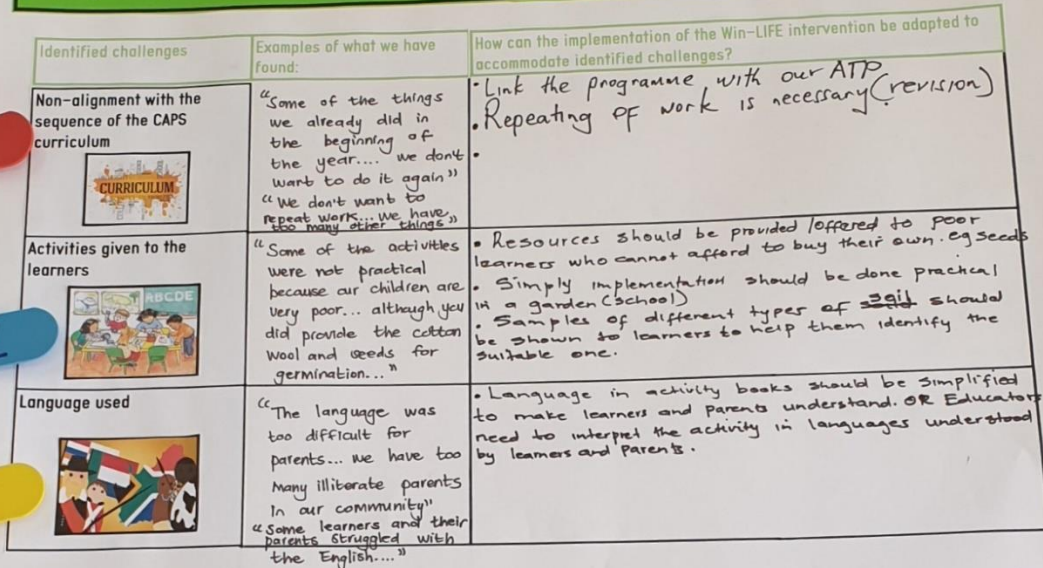 Identified challenges
Examples of what we have
found:
How can the implementation of the Win-LIFE intervention be adapted to
accommodate identified challenges?
Non-alignment with the
sequence of the CAPS
curriculum
CURRICULUM
"Some of the things
we already did in
the beginning of
the year.... we don't
want to do it again"
"We don't want to
repeat work... we have
too many other things"
• Link the programme with our ATP
• Repeating of work is necessary (revision)
•
Activities given to the
learners
ABCDE
"Some of the activities
were not practical
because our children are
very poor... although you
did provide the cotton
wool and seeds for
germination..."
• Resources should be provided/offered to poor
learners who cannot afford to buy their own. eg seeds
• Simply implementation should be done prachcal
in a garden (school)
• Samples of different types of soil should
be shown to learners to help them identify the
suitable one.
Language used
"The language was
too difficult for
parents... we have too
many illiterate parents
in our community"
"Some learners and their
parents struggled with
the English...."
• Language in activity books should be simplified
to make learners and parents understand. OR Educators
need to interpret the activity in languages understood
by learners and parents.